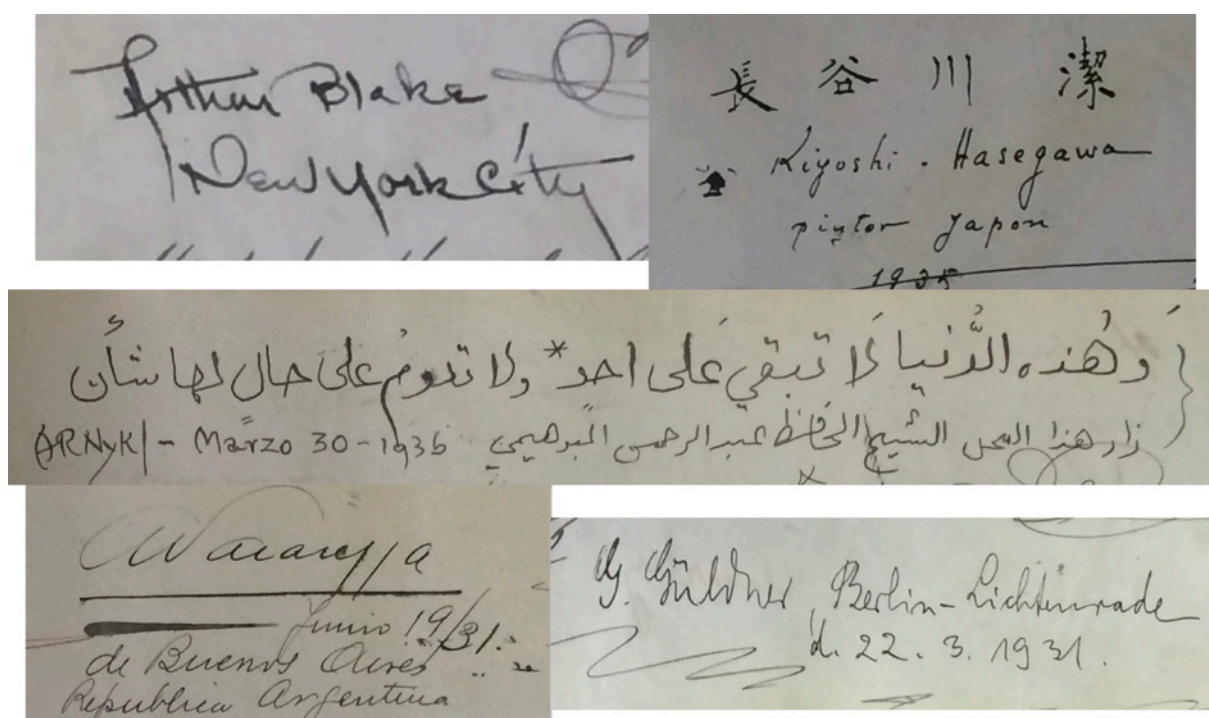 Arthur Blake
New York City
長谷川 潔
Kiyoshi - Hasegawa
pintor Japon
1935
وَهٰذه الدُّنيا لَا تبقي عَلى احد * ولا تدومُ عَلى حال لها شأن
زار هذا المحل الشيخ الحافظ عبد الرحمن
(ARNYK) - Marzo 30 - 1936
Junio 19/31.
de Buenos Aires
Republica Argentina
G. Güldner, Berlin-Lichtenrade
d. 22. 3. 1931.